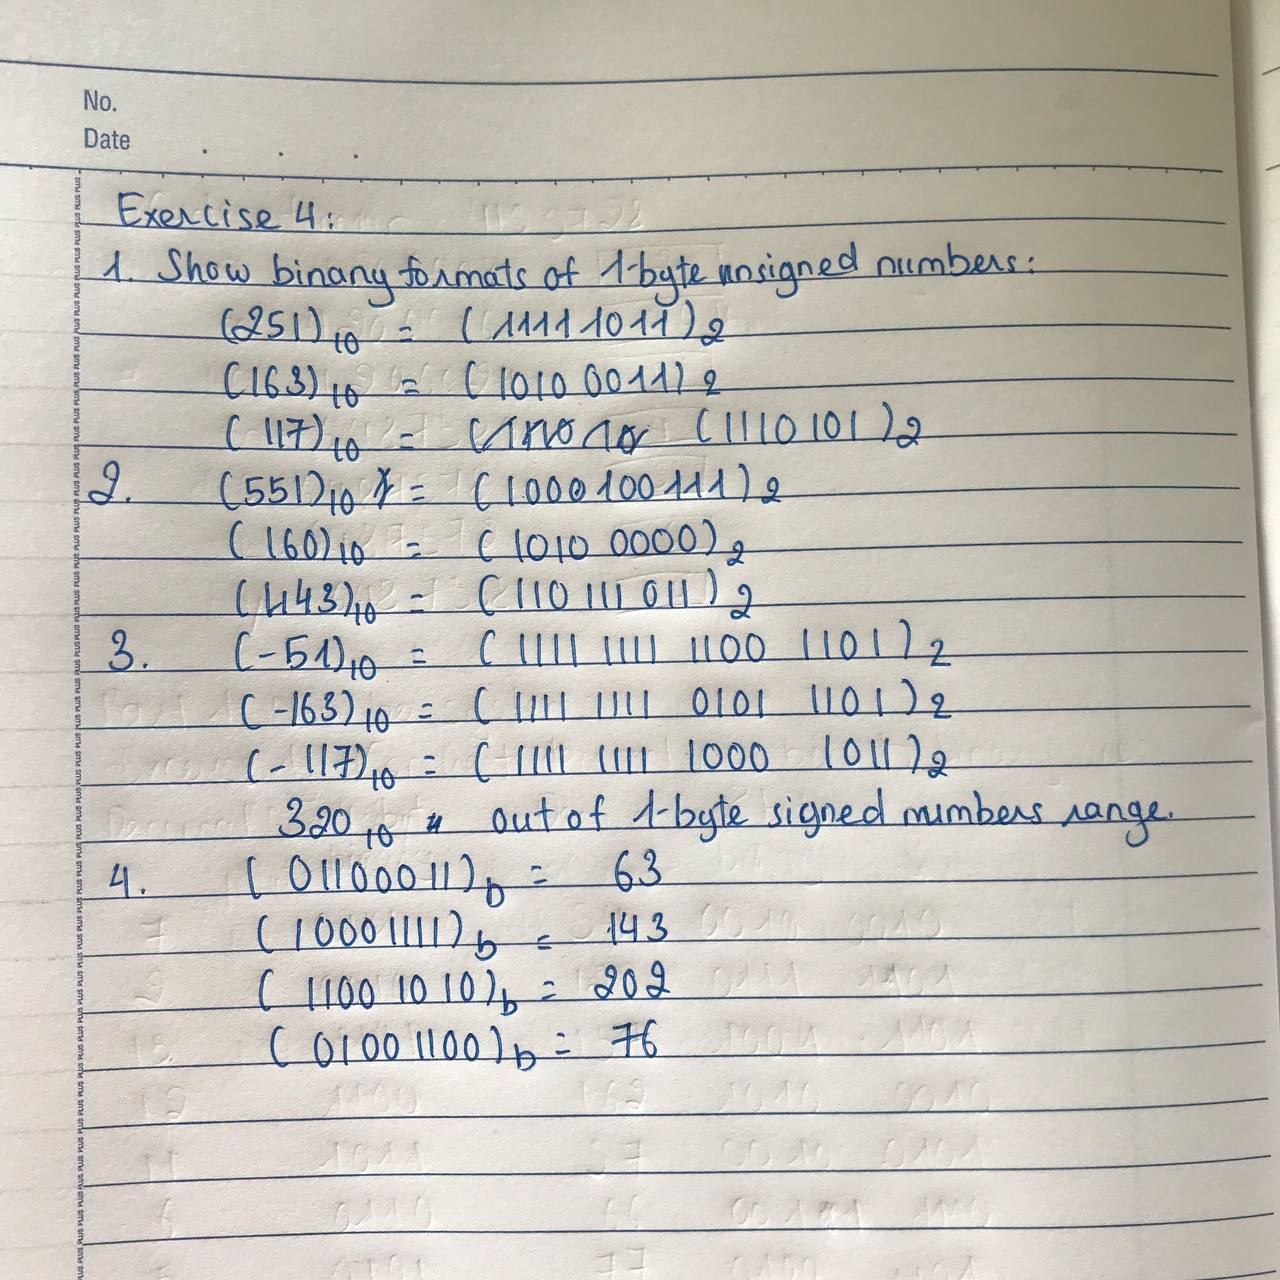 No.
Date . . .
Exercise 4:
1. Show binary formats of 1-byte unsigned numbers:
(251)10 = (11111011)2
(163)10 = (1010 0011)2
(117)10 = (1110101)2
2. (551)10 = (1000100111)2
(160)10 = (1010 0000)2
(443)10 = (110 111 011)2
3. (-51)10 = (1111 1111 1100 1101)2
(-163)10 = (1111 1111 0101 1101)2
(-117)10 = (1111 1111 1000 1011)2
320 10 out of 1-byte signed numbers range.
4. (01100011)b = 63
(10001111)b = 143
(1100 1010)b = 202
(01001100)b = 76